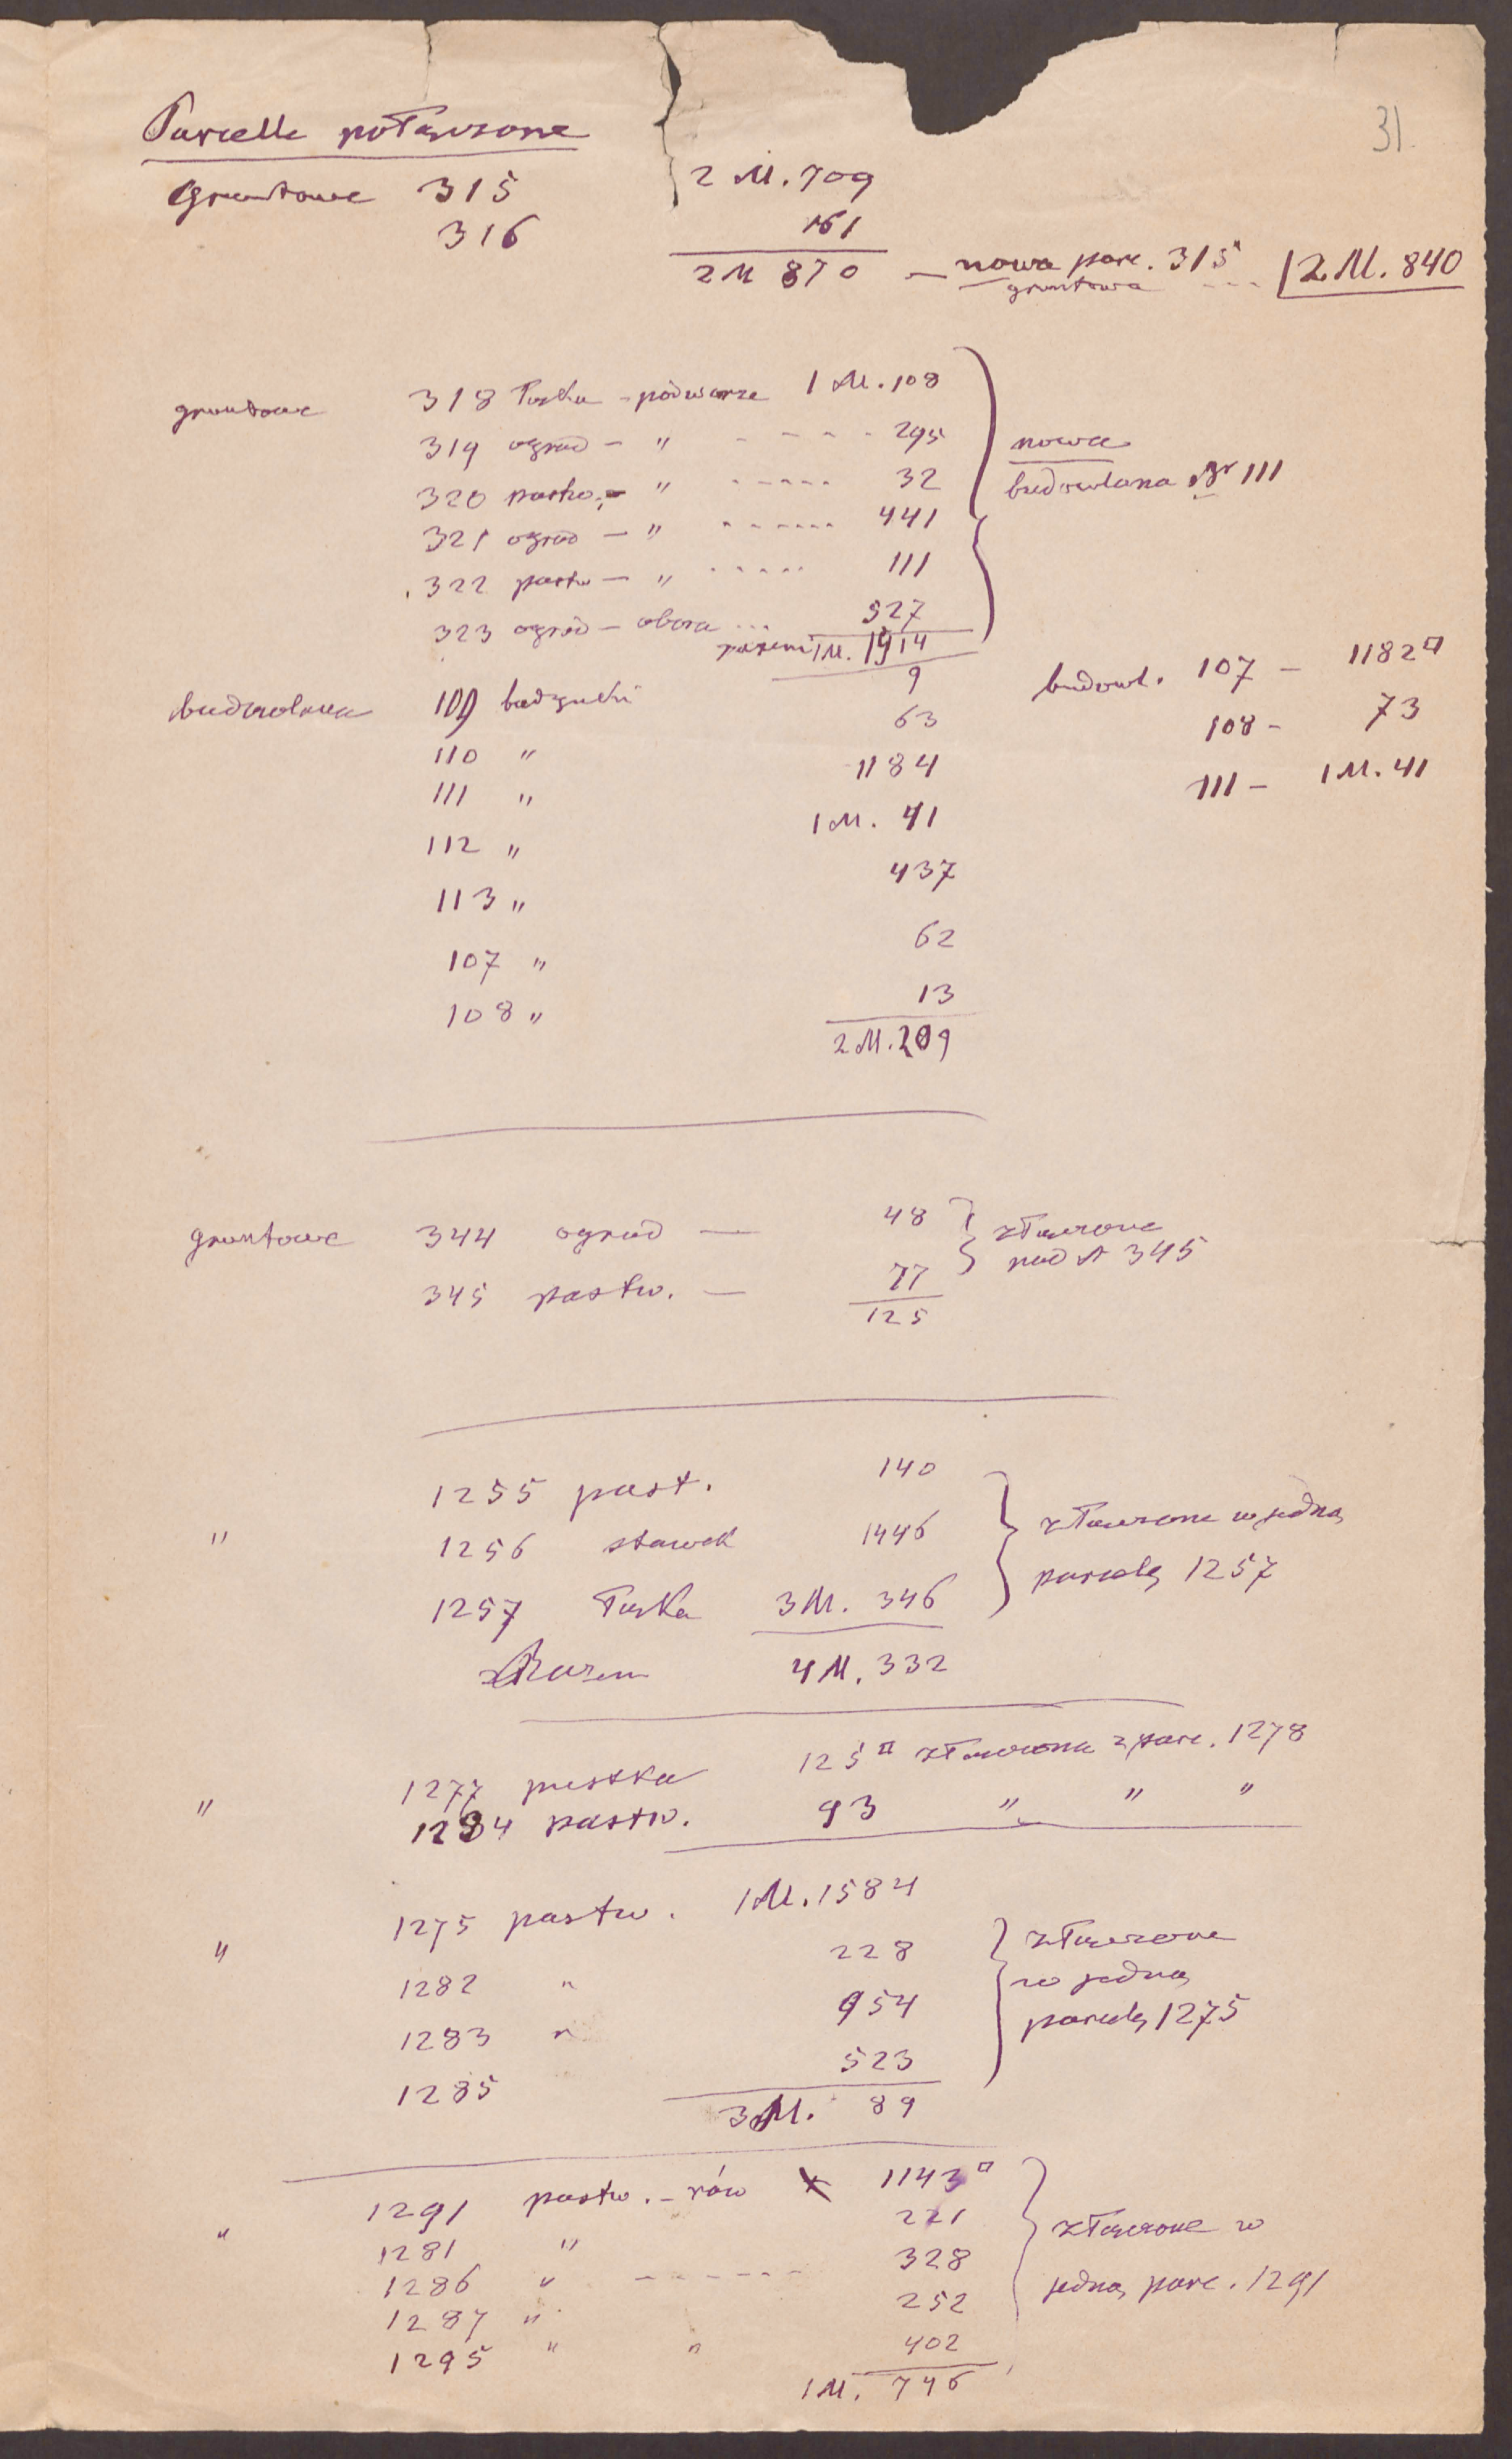 31.
Parcelle połączone
gruntowe 315 2 M. 709
316 161
2 M 870 — nowa parc. 315 2 M. 840
gruntowa
gruntowe 318 łąka - podwórze 1 M. 108
319 ogród — " - - - - 295
320 pastw. — " - - - - - 32
nowa
budowlana Nr 111
321 ogród — " - - - - - - 441
322 pastw — " - - - - - 111
323 ogród — obora ... 927
razem 1 M. 1914
budowlana 109 budynki 9
110 " 63
111 " 1184
112 " 1 M. 41
113 " 437
107 " 62
108 " 13
2 M. 209
budowl. 107 — 1182□
108 - 73
111 — 1 M. 41
gruntowe 344 ogród — 48
345 pastw. — 77
125
złączone
pod N 345
" 1255 past. 140
1256 stawek 1446
1257 łąka 3 M. 346
Razem 4 M. 332
złączone w jedną
parcelę 1257
" 1277 pustka 125□ złączona z parc. 1278
1284 pastw. 93 " " "
" 1275 pastw. 1 M. 1584
1282 " 228
1283 " 954
1285 523
3 M. 89
złączone
w jedną
parcelę 1275
" 1291 pastw. - rów 1143□
1281 " 221
1286 " - - - - - - 328
1287 " 252
1295 " " 402
1 M. 746
złączone w
jedną parc. 1291